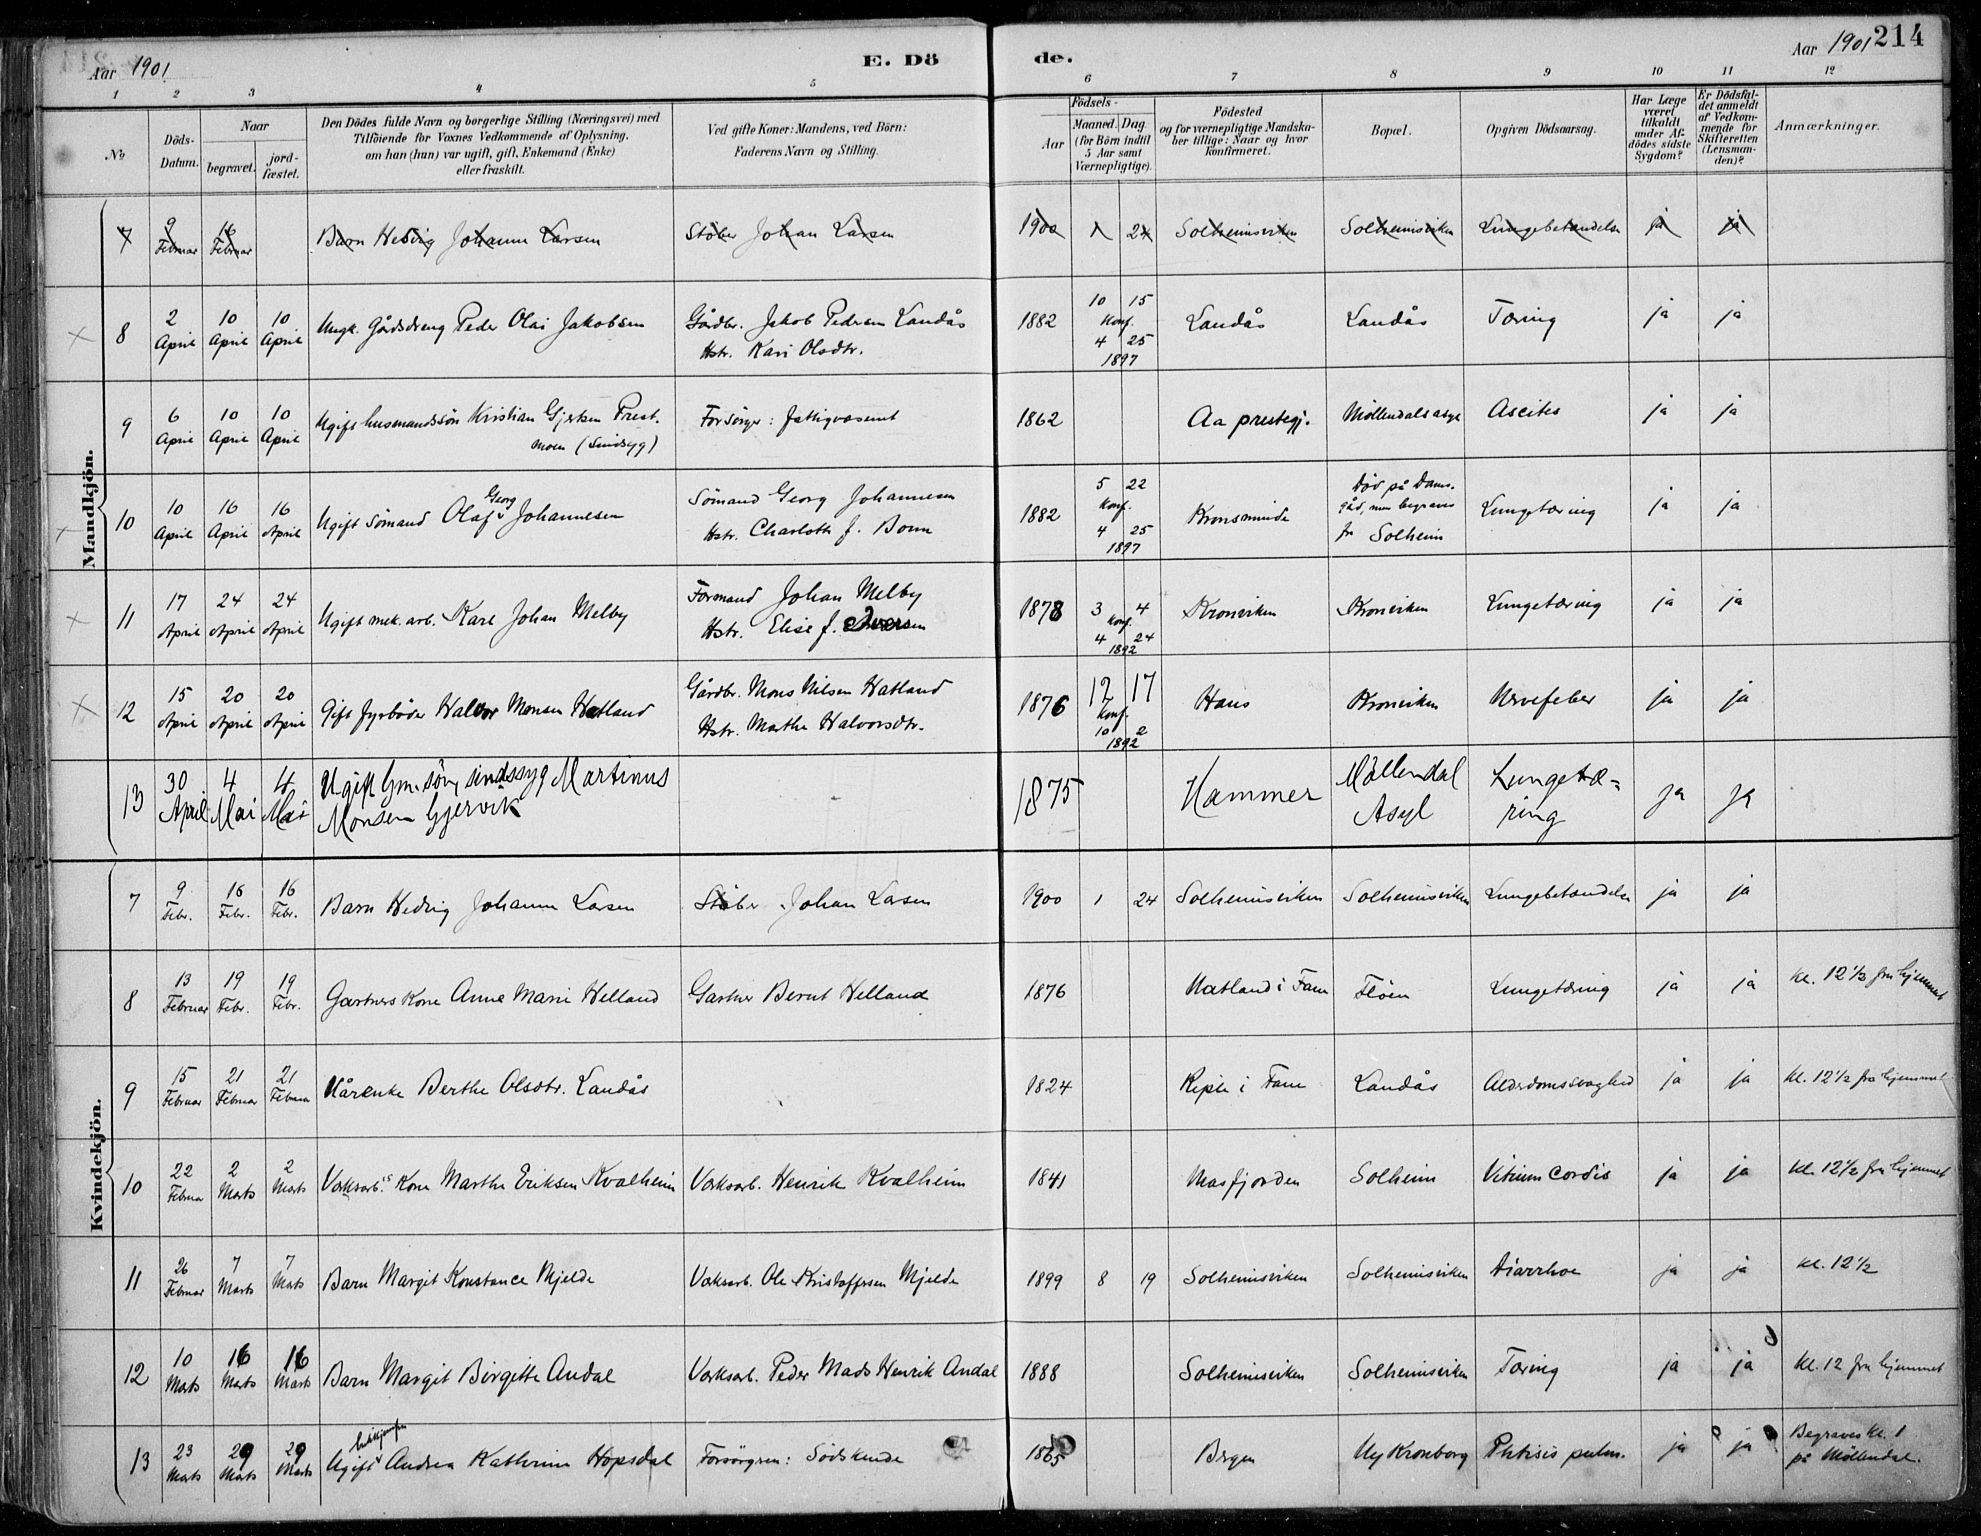 Aar 1901
E. Dö de.
Aar 1901 214
1 2 3 4 5 6 7 8 9 10 11 12
No
Döds-Datum.
Naar
begravet.
jord-fæstet.
Den Dödes fulde Navn og borgerlige Stilling (Næringsvei) med
Tilföiende for Voxnes Vedkommende af Oplysning,
om han (hun) var ugift, gift, Enkemand (Enke)
eller fraskilt.
Ved gifte Koner: Mandens, ved Börn:
Faderens Navn og Stilling.
Födsels-
Aar
Maaned. Dag.
(for Börn indtil
5 Aar samt
Værnepligtige).
Födested
og for værnepligtige Mandska-
ber tillige: Naar og hvor
konfirmeret.
Bopæl.
Opgiven Dödsaarsag.
Har Læge
været
tilkaldt
under Af-
dödes sidste
Sygdom?
Er Dödsfal-
det anmeldt
af Vedkom-
mende for
Skifteretten
(Lensman-
den)?
Anmærkninger.
Mandkjön.
7 9 Februar 16 Februar Barn Hedvig Johanne Larsen Stöber Johan Larsen 1900 1 24 Solheimsviken Solheimsviken Lungebetændelse ja ja
8 2 April 10 April 10 April Ungk. Gårdsdreng Peder Olai Jakobsen Gårdbr. Jakob Pedersen Landås 1882 10 15 Landås Landås Tæring ja ja
Hstr. Kari Olsdtr. Konf. 4 25 1897
9 6 April 10 April 10 April Ugift husmandssön Kristian Gjertsen Prest- Forsörger: Fattigvæsenet 1862 Aa prestegj. Möllendals asyl Ascites ja ja
moen (Sindsyg)
10 10 April 16 April 16 April Ugift sömand Olaf Georg Johannesen Sömand Georg Johannesen 1882 5 22 Kronsminde Död på Dams-
gård, men begraves
fra Solheim Lungetæring ja ja
Hstr. Charlotte f. Bonn Konf. 4 25 1897
11 17 April 24 April 24 April Ugift mek. arb. Karl Johan Melby Formand Johan Melby 1878 3 4 Kronviken Kronviken Lungetæring ja ja
Hstr. Elise f. Iversen Konf. 4 24 1892
12 15 April 20 April 20 April Gift fyrböder Halvor Monsen Hatland Gårdbr. Mons Nilsen Hatland 1876 12 17 Haus Kronviken Nervefeber ja ja
Hstr. Marthe Halvorsdtr. Konf. 10 2 1892
13 30 April 4 Mai 4 Mai Ugift Gm. sön, sindssyg Martinus
Monsen Gjervik 1875 Hammer Möllendal
Asyl Lungetæ-
ring ja ja
Kvindekjön.
7 9 Febr. 16 Febr. 16 Febr. Barn Hedvig Johanne Larsen Stöber Johan Larsen 1900 1 24 Solheimsviken Solheimsviken Lungebetændelse ja ja
8 13 Februar 19 Febr. 19 Febr. Gartners Kone Anne Marie Helland Gartner Bernt Helland 1876 Natland i Fane Flöen Lungetæring ja ja kl. 12 1/2 fra hjemmet
9 15 Februar 21 Februar 21 Februar Kårenke Berthe Olsdtr. Landås 1824 Riple i Fane Landås Alderdomssvaghed ja ja kl. 12 1/2 fra hjemmet
10 22 Februar 2 Marts 2 Marts Værksarb.s Kone Marthe Eriksen Kvalheim Værksarb. Henrik Kvalheim 1841 Masfjorden Solheim Vitium Cordis ja ja kl. 12 1/2 fra hjemmet
11 26 Februar 7 Marts 7 Marts Barn Margit Konstance Mjelde Værksarb. Ole Kristoffersen Mjelde 1899 8 19 Solheimsviken Solheimsviken Diarrhoe ja ja kl. 12 1/2
12 10 Marts 16 Marts 16 Marts Barn Margit Birgitte Andal Værksarb. Peder Mads Henrik Andal 1888 Solheimsviken Solheimsviken Tæring ja ja kl. 12 fra hjemmet
13 23 Marts 29 Marts 29 Marts Ugift Andrea Kathrine Hopsdal Forsörgeren: Södskende 1865 Bergen Ny Kronborg Phtisis pulm. ja ja Begraves kl. 1
på Möllendal.